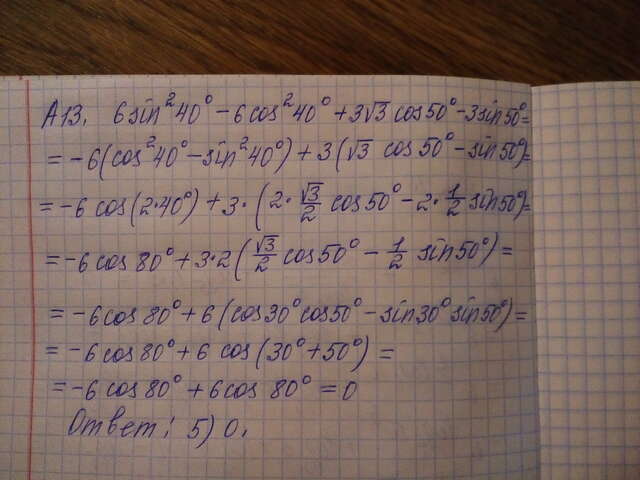 А13. 6sin²40° - 6cos²40° + 3√3 cos50° - 3sin50° =
= -6(cos²40° - sin²40°) + 3(√3 cos50° - sin50°) =
= -6 cos(2·40°) + 3·(2·√3/2 cos50° - 2·1/2 sin50°) =
= -6cos 80° + 3·2(√3/2 cos50° - 1/2 sin50°) =
= -6cos 80° + 6(cos30°cos50° - sin30°sin50°) =
= -6cos80° + 6 cos(30° + 50°) =
= -6cos80° + 6cos 80° = 0
Ответ: 5) 0.